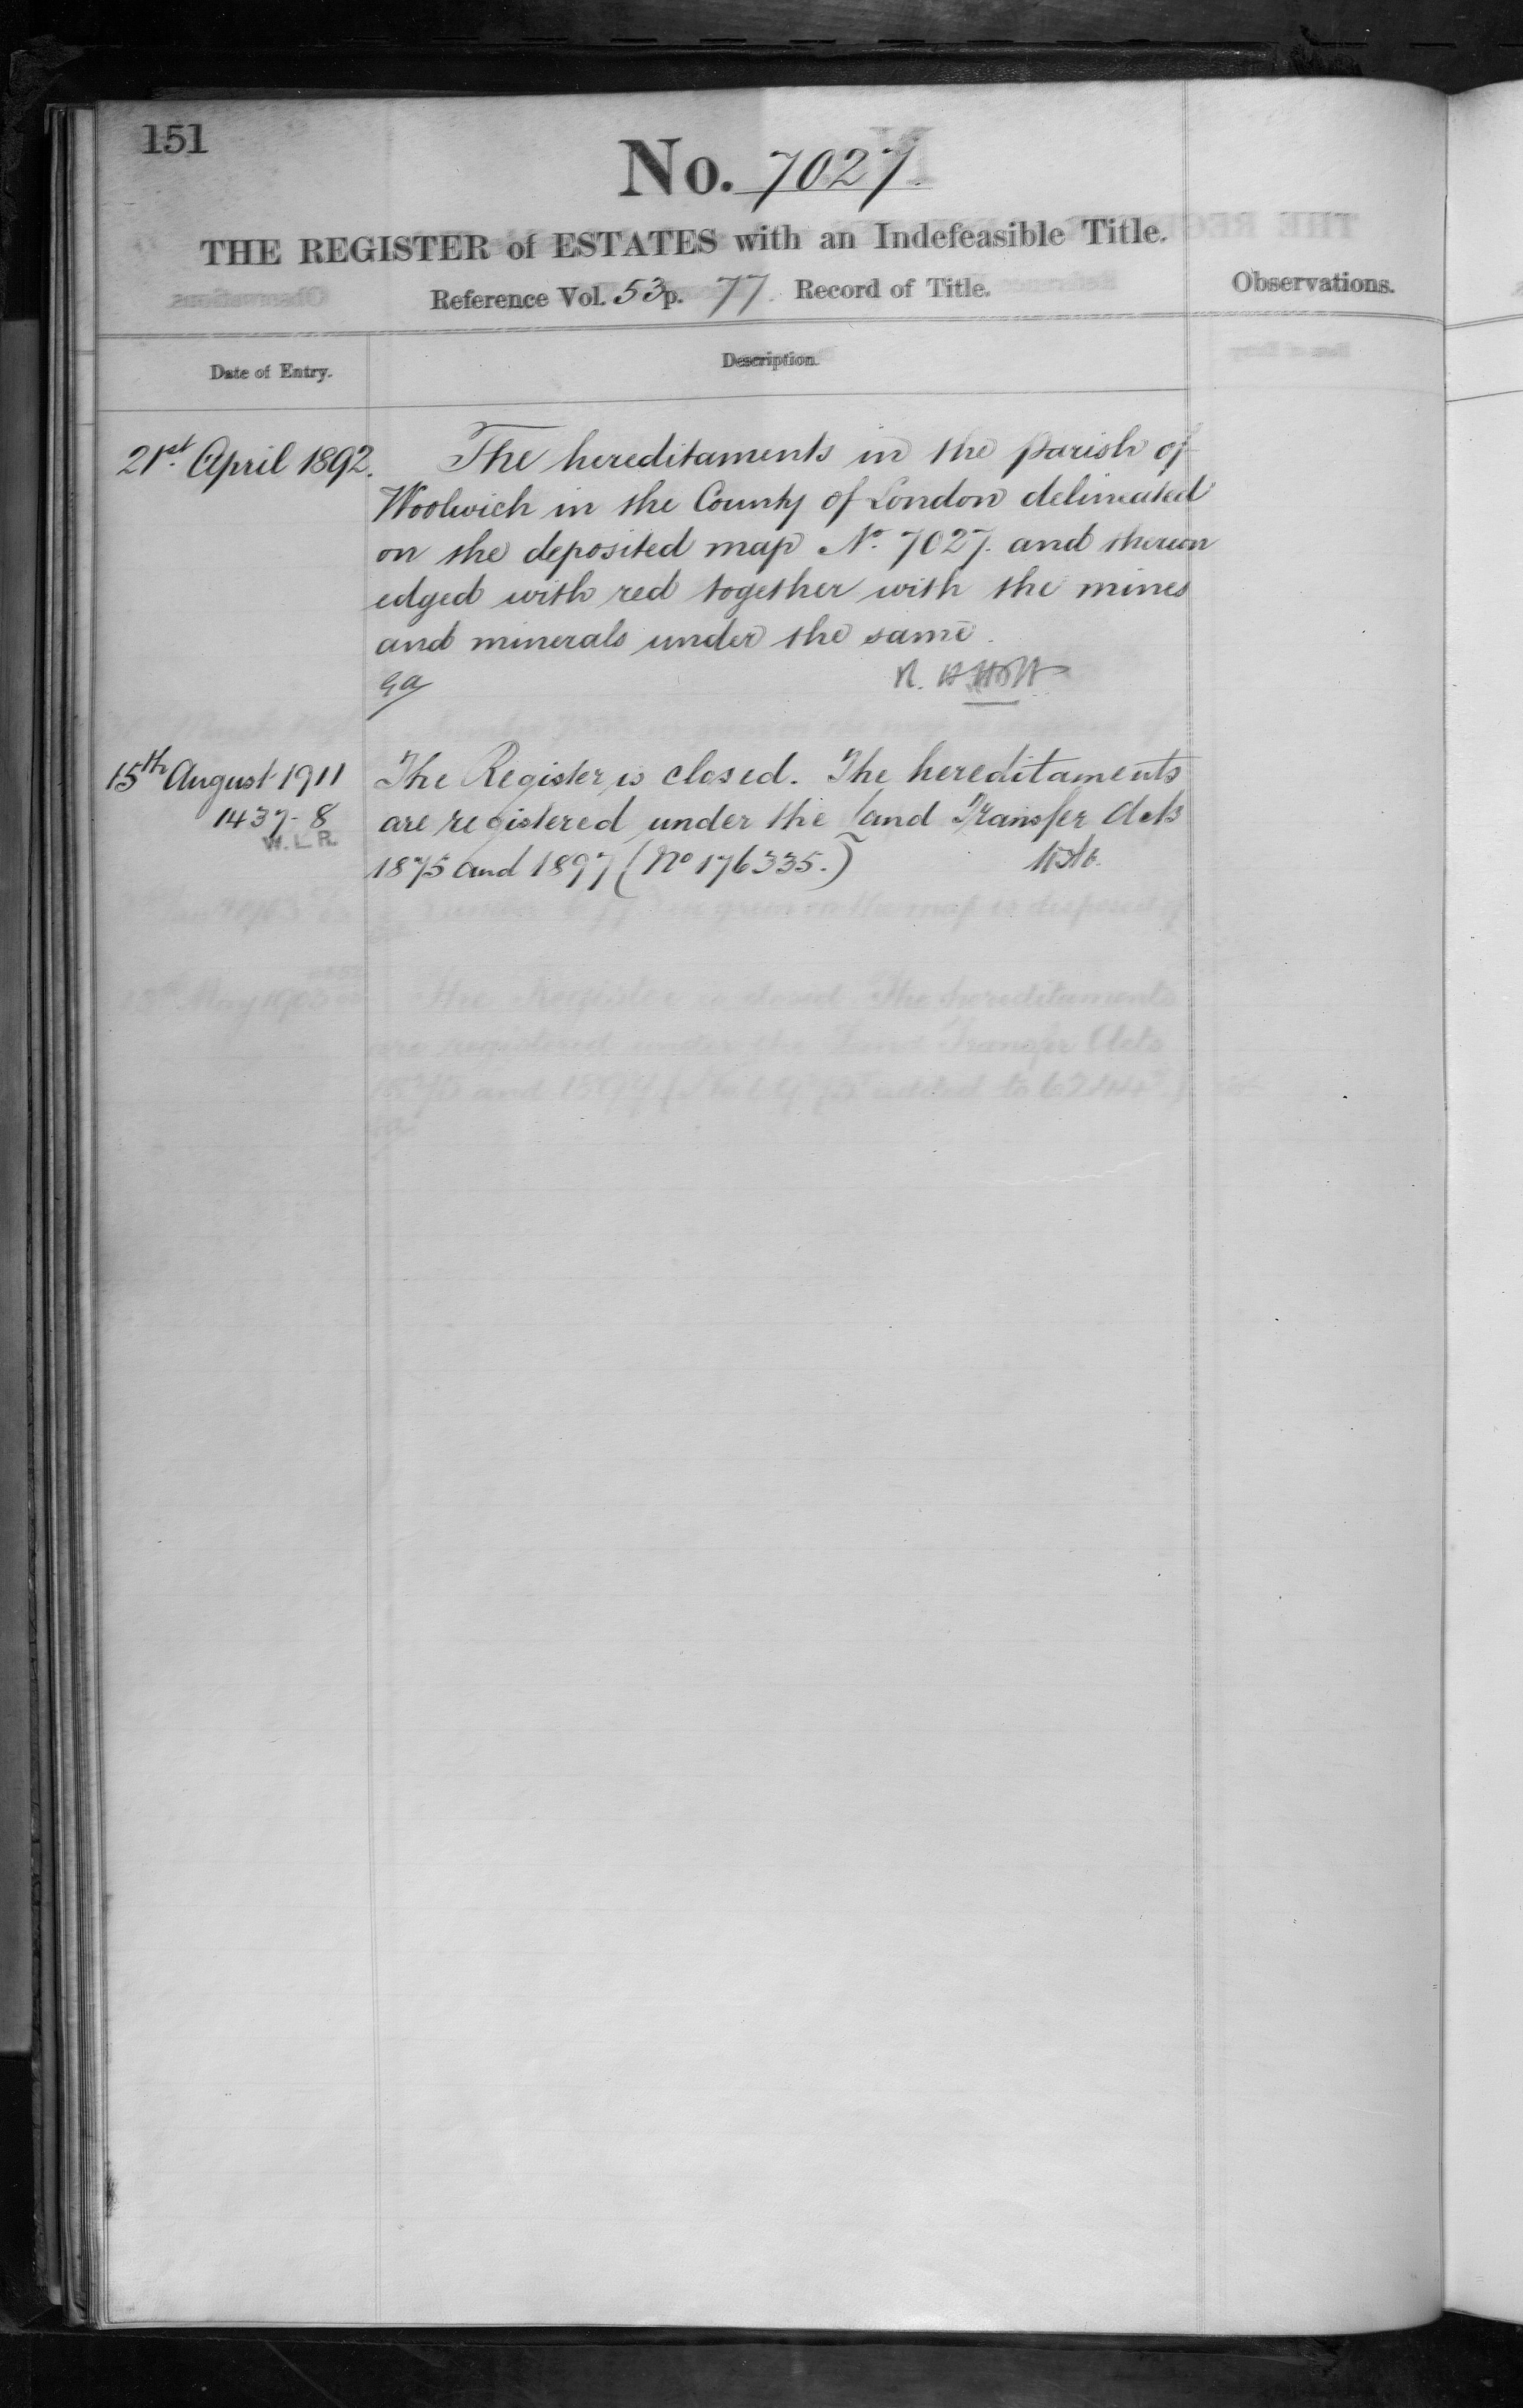 151
No. 7027.
THE REGISTER of ESTATES with an Indefeasible Title.
Reference Vol. 53 p. 77. Record of Title.
Observations.
Date of Entry.
Description.
21st. April 1892.
The hereditaments in the parish of
Woolwich in the County of London delineated
on the deposited map No. 7027. and thereon
edged with red together with the mines
and minerals under the same.
15th August 1911
The Register is closed. The hereditaments
1437-8
are registered under the Land Transfer Acts
W.L.R.
1875 and 1897 (No 176335.)